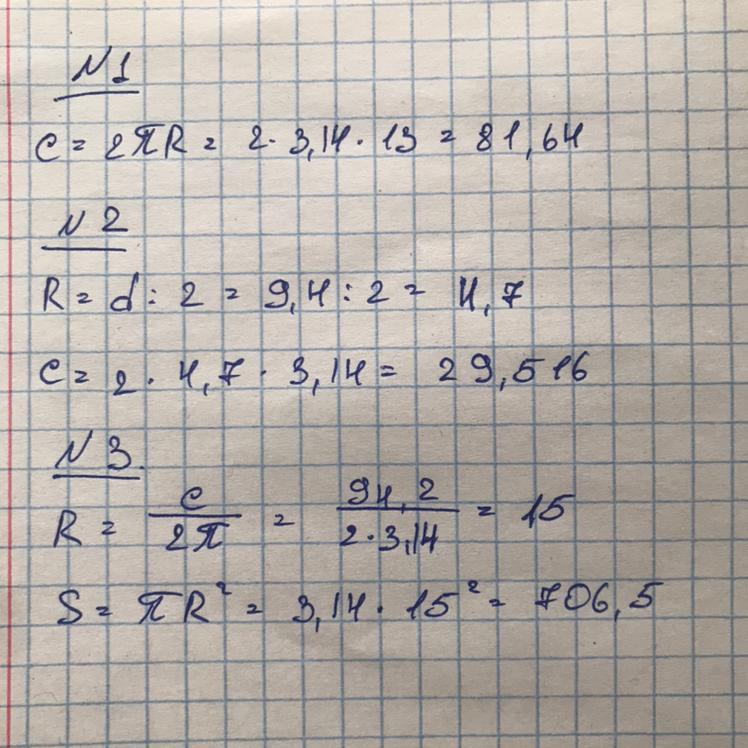 N1
C = 2πR = 2 · 3,14 · 13 = 81,64
N 2
R = d : 2 = 9,4 : 2 = 4,7
C = 2 · 4,7 · 3,14 = 29,516
N 3.
R = C / 2π = 94,2 / 2 · 3,14 = 15
S = πR² = 3,14 · 15² = 706,5